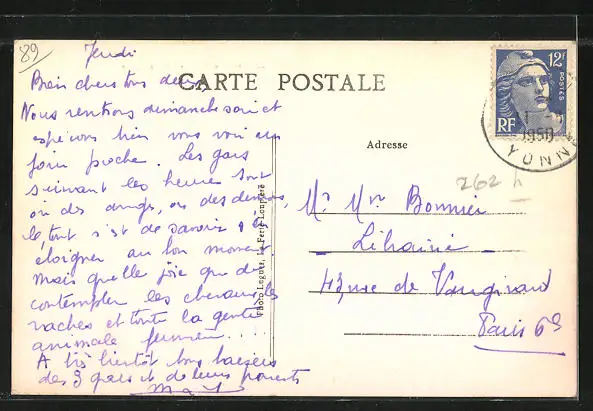 89
Jeudi
Bien chers tous deux
Nous rentrons dimanche soir et
espérons bien vous voir un
jour proche. Les gars
suivant les heures sont
ou des anges, ou des démons,
le tout est de savoir s'
éloigner au bon moment
mais quelle joie que de
contempler les chevaux, les
vaches et toute la gente
animale
A très bientôt bons baisers
des 3 gars et de leurs parents
CARTE POSTALE
Adresse
12F
POSTES
RF
1950
YONNE
262
Mr Mme Bonnier
Librairie
43 rue de Vaugirard
Paris 6e